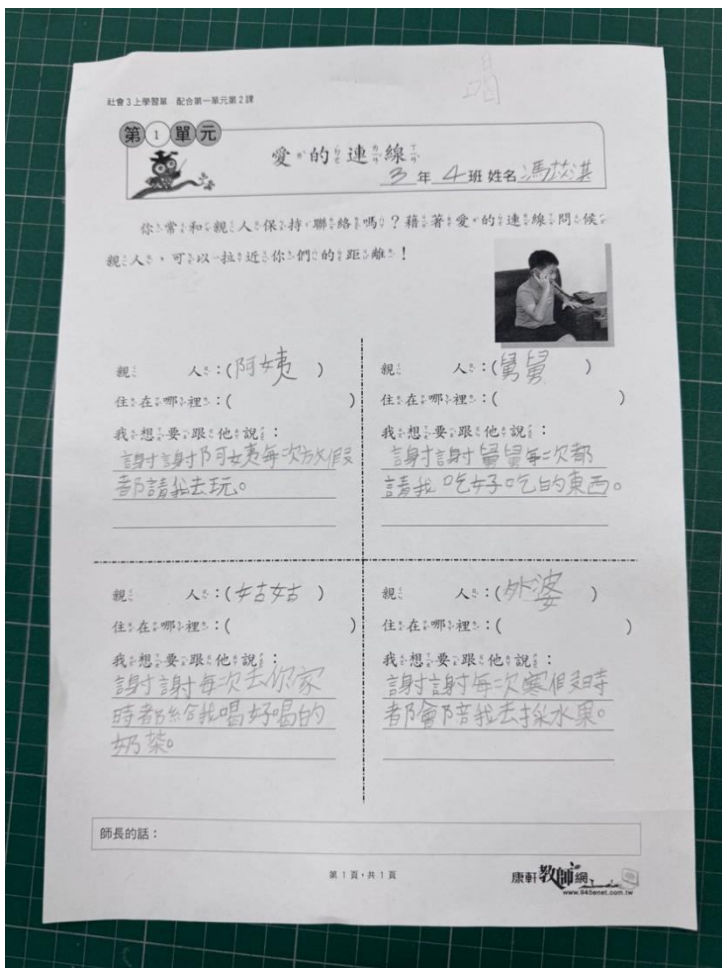 社會3上學習單　配合第一單元第2課
第1單元
愛的連線
3年4班 姓名馮苡淇
你常和親人保持聯絡嗎？藉著愛的連線問候
親人，可以拉近你們的距離！
親　　人：(阿姨　)
住在哪裡：(　　　　)
我想要跟他說：
謝謝阿姨每次放假
都請我去玩。
親　　人：(舅舅　)
住在哪裡：(　　　　)
我想要跟他說：
謝謝舅舅每次都
請我吃好吃的東西。
親　　人：(姑姑　)
住在哪裡：(　　　　)
我想要跟他說：
謝謝每次去你家
時都給我喝好喝的
奶茶。
親　　人：(外婆　)
住在哪裡：(　　　　)
我想要跟他說：
謝謝每次寒假時
都會陪我去採水果。
師長的話：
第1頁，共1頁
康軒教師網
www.945enet.com.tw